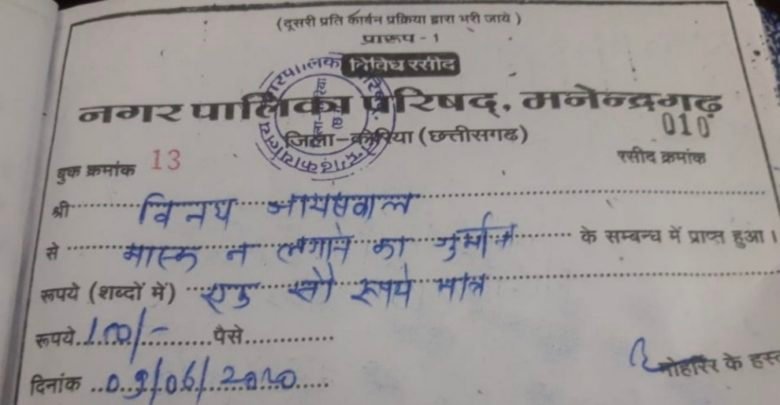 (दूसरी प्रति कार्बन प्रक्रिया द्वारा भरी जाये)
प्रारूप - 1
विविध रसीद
नगर पालिका परिषद्, मनेन्द्रगढ़
जिला-कोरिया (छत्तीसगढ)
010
बुक क्रमांक 13
रसीद क्रमांक
श्री विनय जायसवाल
से मास्क न लगाने का जुर्माना के सम्बन्ध में प्राप्त हुआ।
रूपये (शब्दों में) एक सौ रूपये मात्र
रूपये 100/- पैसे
दिनांक 09/06/2020
मोहर्रिर के हस्त